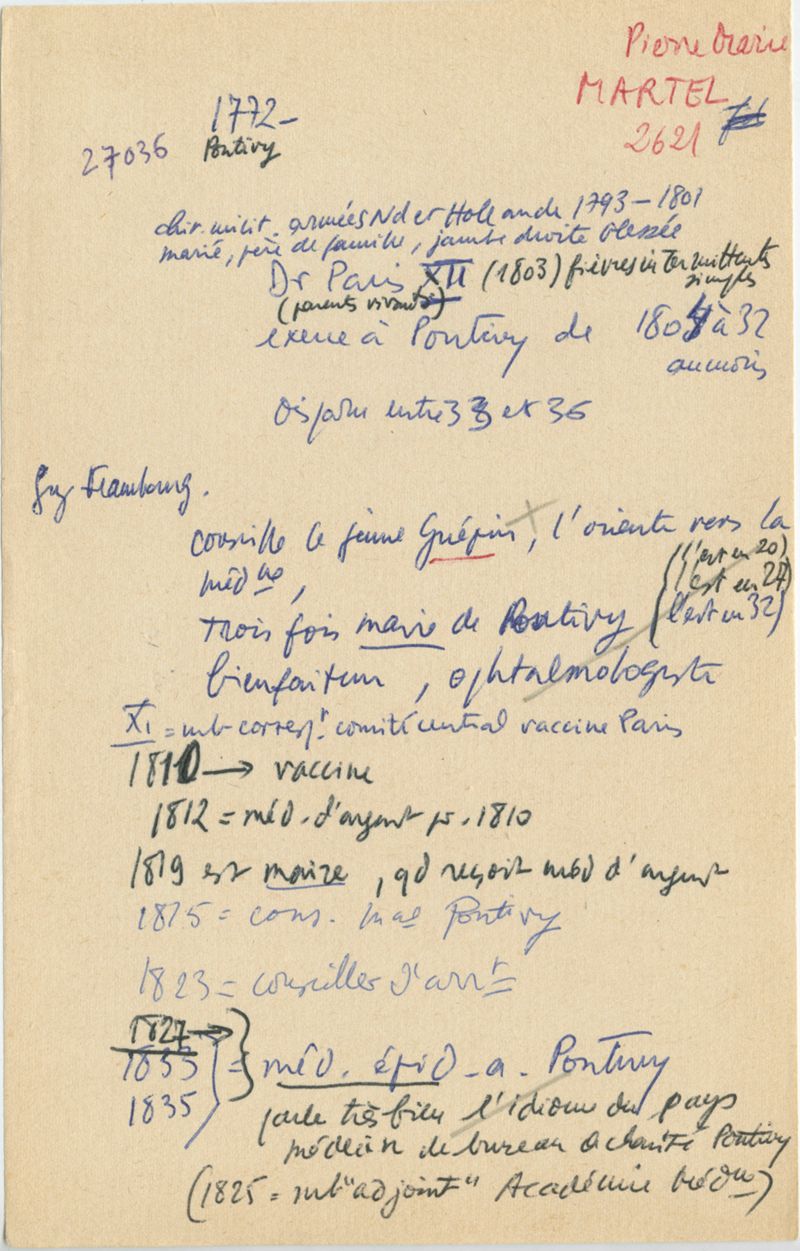 Pierre Marie
MARTEL
2621
1772-
27036 Pontivy
chir. milit. armées Nd et Hollande 1793-1801
marié, père de famille, jambe droite blessée
Dr Paris XII (1803) fièvres intermittents
simples
(parents vivants)
exerce à Pontivy de 1804 à 32
au moins
Disparu entre 33 et 36
Guy Frambourg.
conseille le jeune Guépin, l'oriente vers la
médne,
(l'est en 20)
(l'est en 27)
trois fois maire de Pontivy (l'est en 32)
bienfaiteur, ophtalmologiste
XI = mb correspt. comité central vaccine Paris
1810 → vaccine
1812 = méd. d'argent pr. 1810
1819 est maire, qd reçoit méd d'argent
1815 = cons. mal Pontivy
1823 = conseiller d'arrt
1827 →
1833 = méd. épid - a - Pontivy
1835
parle très bien l'idiome du pays
médecin de bureau de charité Pontivy
(1825 = mb "adjoint" Académie Médne)